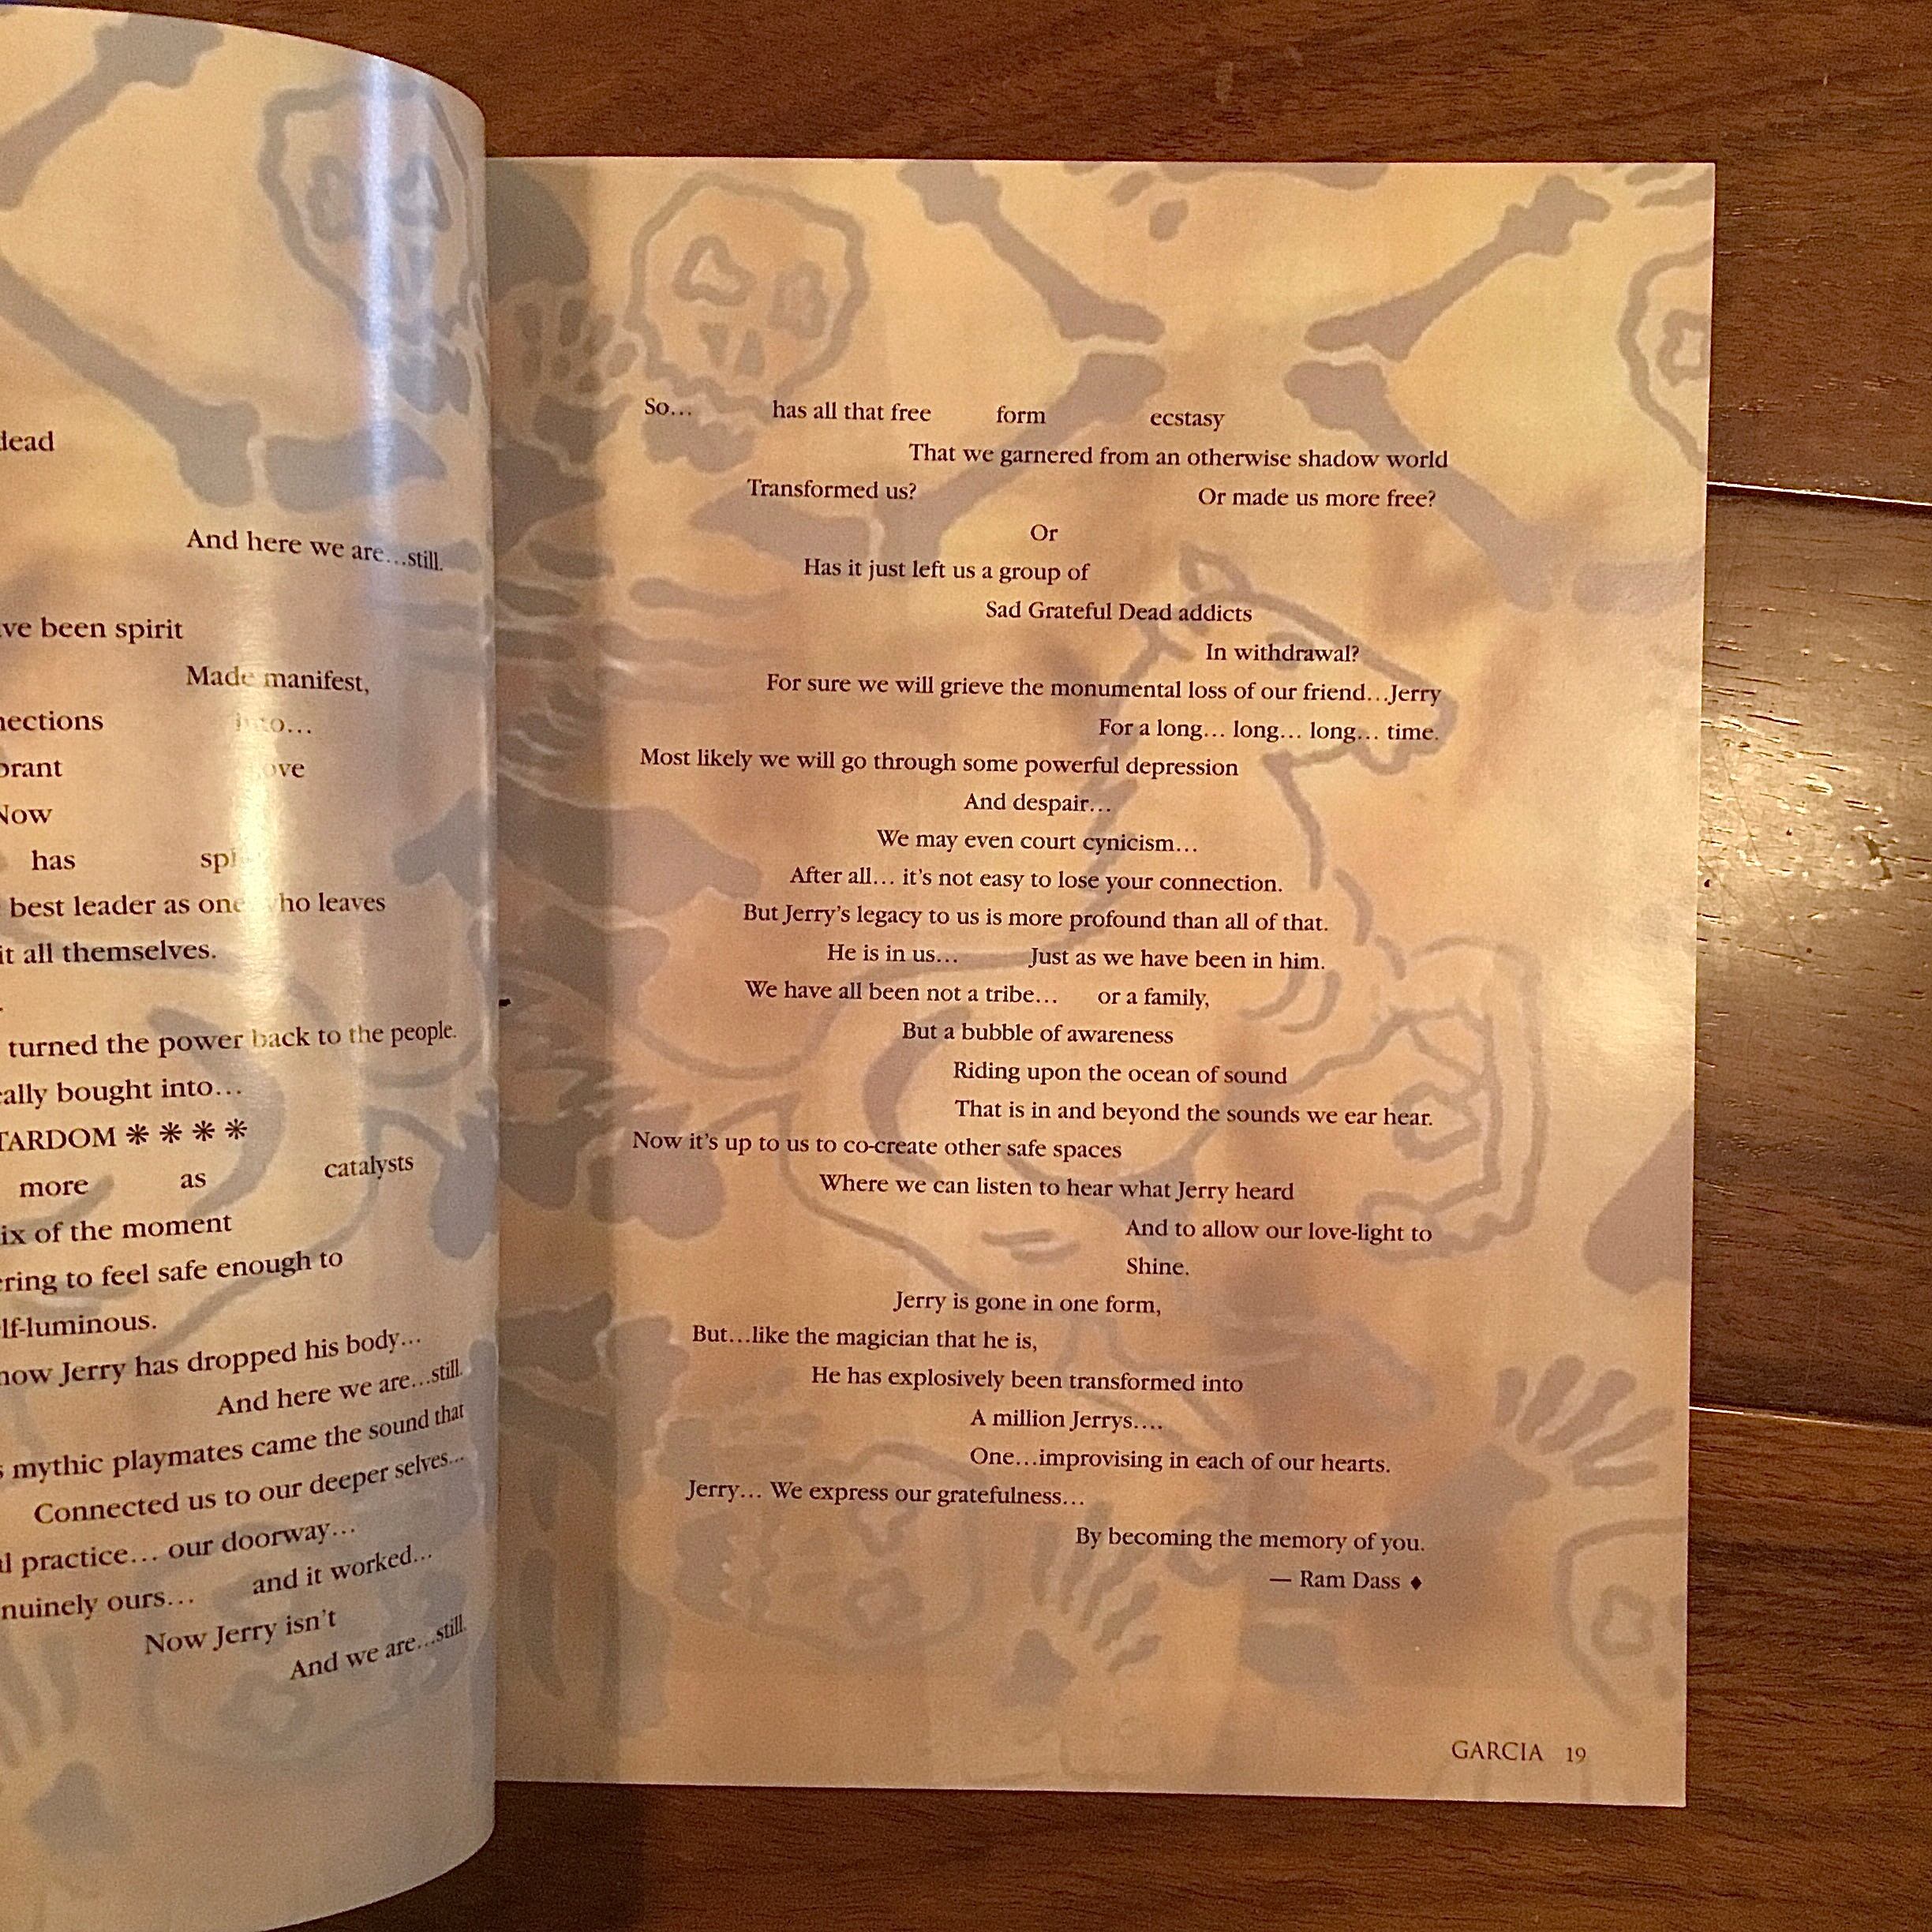 dead
And here we are…still.
been spirit
Made manifest,
Now
has
best leader as one who leaves
it all themselves.
turned the power back to the people.
bought into…
✳ ✳ ✳ ✳
more as catalysts
of the moment
to feel safe enough to
now Jerry has dropped his body…
And here we are…still.
mythic playmates came the sound that
Connected us to our deeper selves…
practice… our doorway…
ours… and it worked…
Now Jerry isn't
And we are…still.
So… has all that free form ecstasy
That we garnered from an otherwise shadow world
Transformed us? Or made us more free?
Or
Has it just left us a group of
Sad Grateful Dead addicts
In withdrawal?
For sure we will grieve the monumental loss of our friend…Jerry
For a long… long… long… time.
Most likely we will go through some powerful depression
And despair…
We may even court cynicism…
After all… it's not easy to lose your connection.
But Jerry's legacy to us is more profound than all of that.
He is in us… Just as we have been in him.
We have all been not a tribe… or a family,
But a bubble of awareness
Riding upon the ocean of sound
That is in and beyond the sounds we ear hear.
Now it's up to us to co-create other safe spaces
Where we can listen to hear what Jerry heard
And to allow our love-light to
Shine.
Jerry is gone in one form,
But…like the magician that he is,
He has explosively been transformed into
A million Jerrys….
One…improvising in each of our hearts.
Jerry… We express our gratefulness…
By becoming the memory of you.
— Ram Dass ♦
GARCIA 19